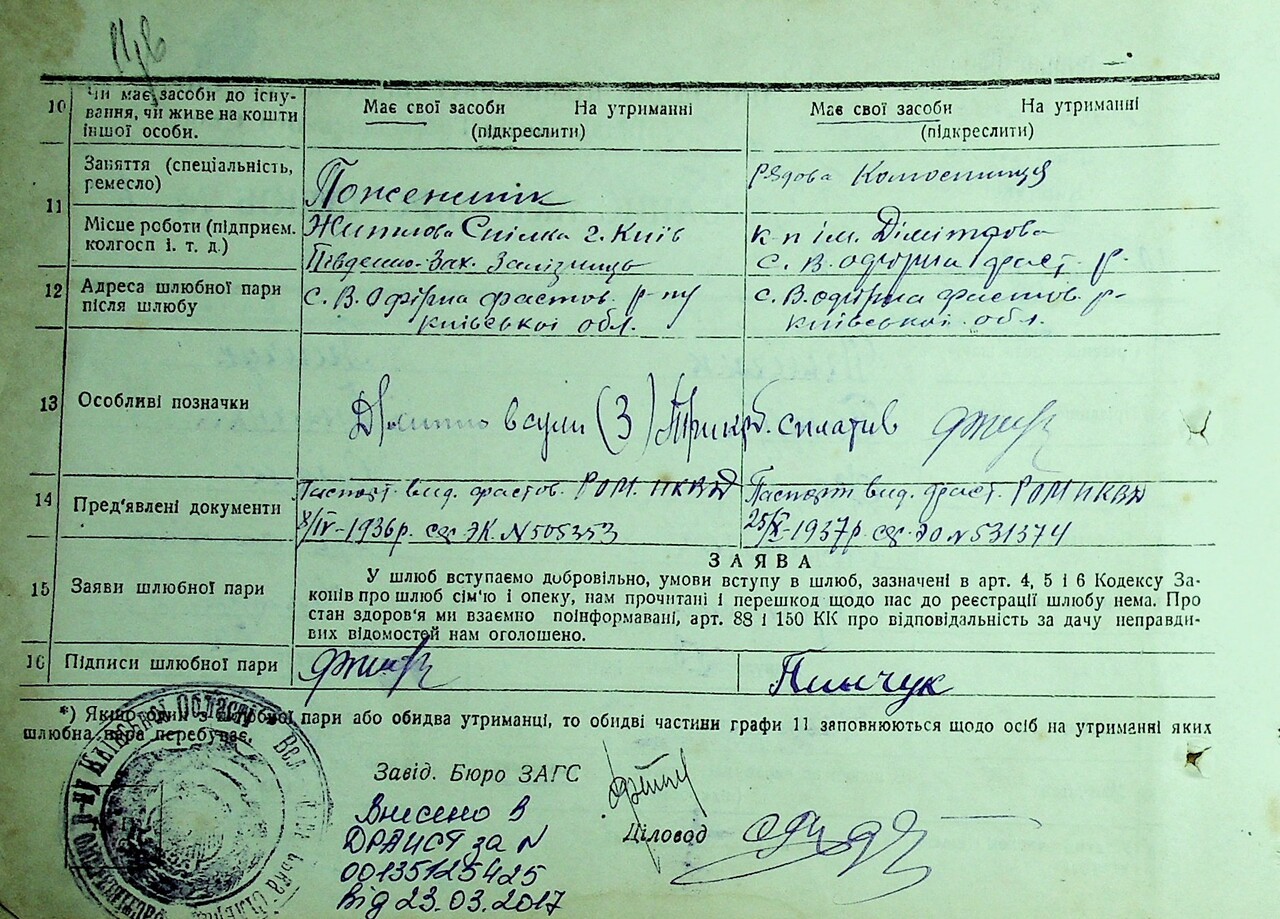 10 Чи має засоби до існу-
вання, чи живе на кошти
іншої особи.
Має свої засоби На утриманні
(підкреслити)
Має свої засоби На утриманні
(підкреслити)
11 Заняття (спеціальність,
ремесло)
рядова
Місце роботи (підприєм.
колгосп і. т. д.)
Житлова Спілка г. Київ
Південно-Зах. Залізниць
к-п ім. Дімітрова
с. В. Офірна фаст. р-
12 Адреса шлюбної пари
після шлюбу
с. В. Офірна фастов. р-ну
київської обл.
с. В. Офірна фастов. р-
київської обл.
13 Особливі позначки
(3) Три крб. сплатив
14 Пред'явлені документи
Паспорт вид. фастов. РОМ. НКВД
8/IV-1936р. N 505353
Паспорт вид. фаст. РОМ НКВД
25/X-1937р. N 531374
15 Заяви шлюбної пари
ЗАЯВА
У шлюб вступаємо добровільно, умови вступу в шлюб, зазначені в арт. 4, 5 і 6 Кодексу За-
конів про шлюб сім'ю і опеку, нам прочитані і перешкод щодо нас до реєстрації шлюбу нема. Про
стан здоров'я ми взаємно поінформавані, арт. 88 і 150 КК про відповідальність за дачу неправди-
вих відомостей нам оголошено.
16 Підписи шлюбної пари
Пинчук
*) Якщо один з шлюбної пари або обидва утриманці, то обидві частини графи 11 заповнюються щодо осіб на утриманні яких
шлюбна пара перебуває.
Завід. Бюро ЗАГС
Діловод
Внесено в
ДРАЦСГ за N
00135125425
від 23.03.2017